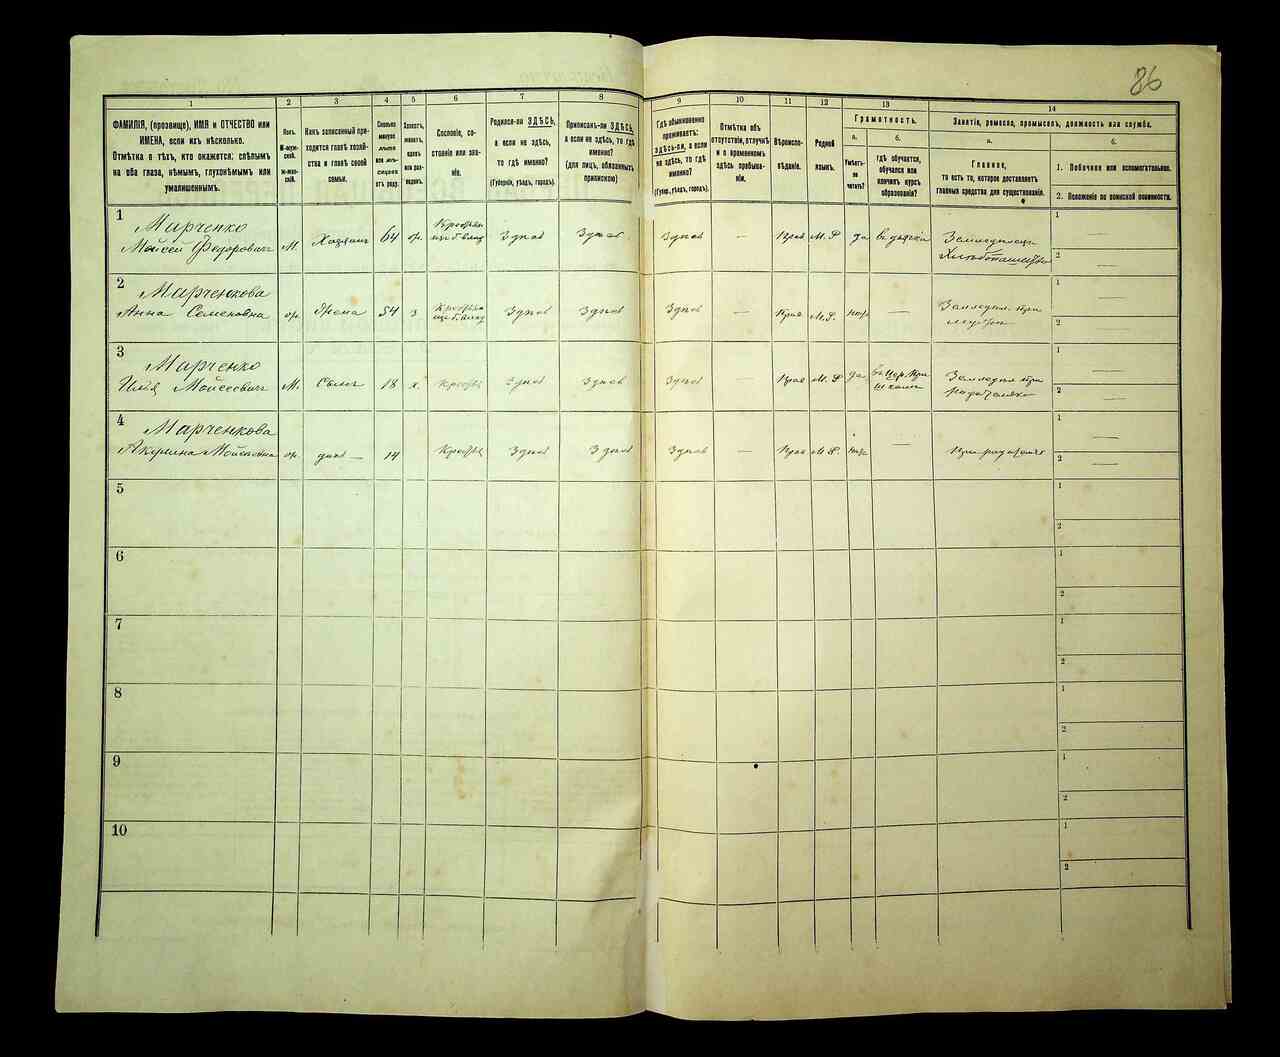 86
1
2
3
4
5
6
7
8
9
10
11
12
13
14
ФАМИЛІЯ, (прозвище), ИМЯ и ОТЧЕСТВО или
ИМЕНА, если ихъ нѣсколько.
Отмѣтка о тѣхъ, кто окажется: слѣпымъ
на оба глаза, нѣмымъ, глухонѣмымъ или
умалишеннымъ.
Полъ.
М-муж-
ской.
ж-жен-
скій.
Какъ записанный при-
ходится главѣ хозяй-
ства и главѣ своей
семьи.
Сколько
минуло
лѣтъ
или мѣ-
сяцевъ
отъ роду.
Холостъ,
женатъ,
вдовъ
или раз-
веденъ.
Сословіе, со-
стояніе или зва-
ніе.
Родился-ли ЗДѢСЬ,
а если не здѣсь,
то гдѣ именно?
(Губернія, уѣздъ, городъ).
Приписанъ-ли ЗДѢСЬ,
а если не здѣсь, то гдѣ
именно?
(для лицъ, обязанныхъ
припискою)
Гдѣ обыкновенно
проживаетъ:
ЗДѢСЬ-ли, а если
не здѣсь, то гдѣ
именно?
(Губер., уѣздъ, городъ).
Отмѣтка объ
отсутствіи, отлучкѣ
и о временномъ
здѣсь пребыва-
ніи.
Вѣроиспо-
вѣданіе.
Родной
языкъ.
Грамотность.
а.
Умѣетъ-
ли
читать?
б.
гдѣ обучается,
обучался или
кончилъ курсъ
образованія?
Занятіе, ремесло, промыселъ, должность или служба.
а.
Главное,
то есть то, которое доставляетъ
главныя средства для существованія.
б.
1. Побочное или вспомогательное.
2. Положеніе по воинской повинности.
1
Марченко
Моисей Федоровичъ М. Хозяинъ 64 Здѣсь Здѣсь Здѣсь — Прав М. Р да
1 —
2 —
2
Марченкова
Анна Семеновна Жена 54 Здѣсь Здѣсь Здѣсь — Прав М. Р. —
1 —
2 —
3
Марченко
Илья Моисеевичъ М. Сынъ 18 х. Здѣсь Здѣсь Здѣсь — Прав М. Р да
1 —
2 —
4
Марченкова
Акулина Моисеевна дочь — 14 Здѣсь Здѣсь Здѣсь — Прав М. Р. —
1 —
2 —
5
1
2
6
1
2
7
1
2
8
1
2
9
1
2
10
1
2